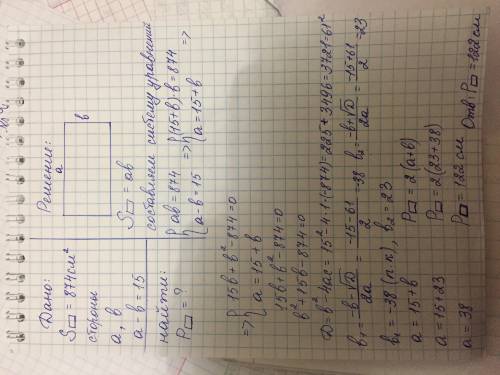 №4.
Дано:
S▭ = 874 см²
стороны
a, b
a - b = 15
найти:
P▭ = ?
Решение:
a
b
S▭ = ab
составляем систему уравнений
{ab = 874 => {(15+b)·b = 874 =>
{a-b = 15 {a = 15+b
=> {15b + b² - 874 = 0
{a = 15 + b
15b + b² - 874 = 0
b² + 15b - 874 = 0
D = b² - 4ac = 15² - 4·1·(-874) = 225 + 3496 = 3721 = 61²
b₁ = -b-√D / 2a = -15-61 / 2 = -38 b₂ = -b+√D / 2a = -15+61 / 2 = 23
b₁ = -38 (п.к), b₂ = 23
a = 15 + b P▭ = 2(a+b)
a = 15 + 23 P▭ = 2(23+38)
a = 38 P▭ = 122 см Отв: P▭ = 122 см